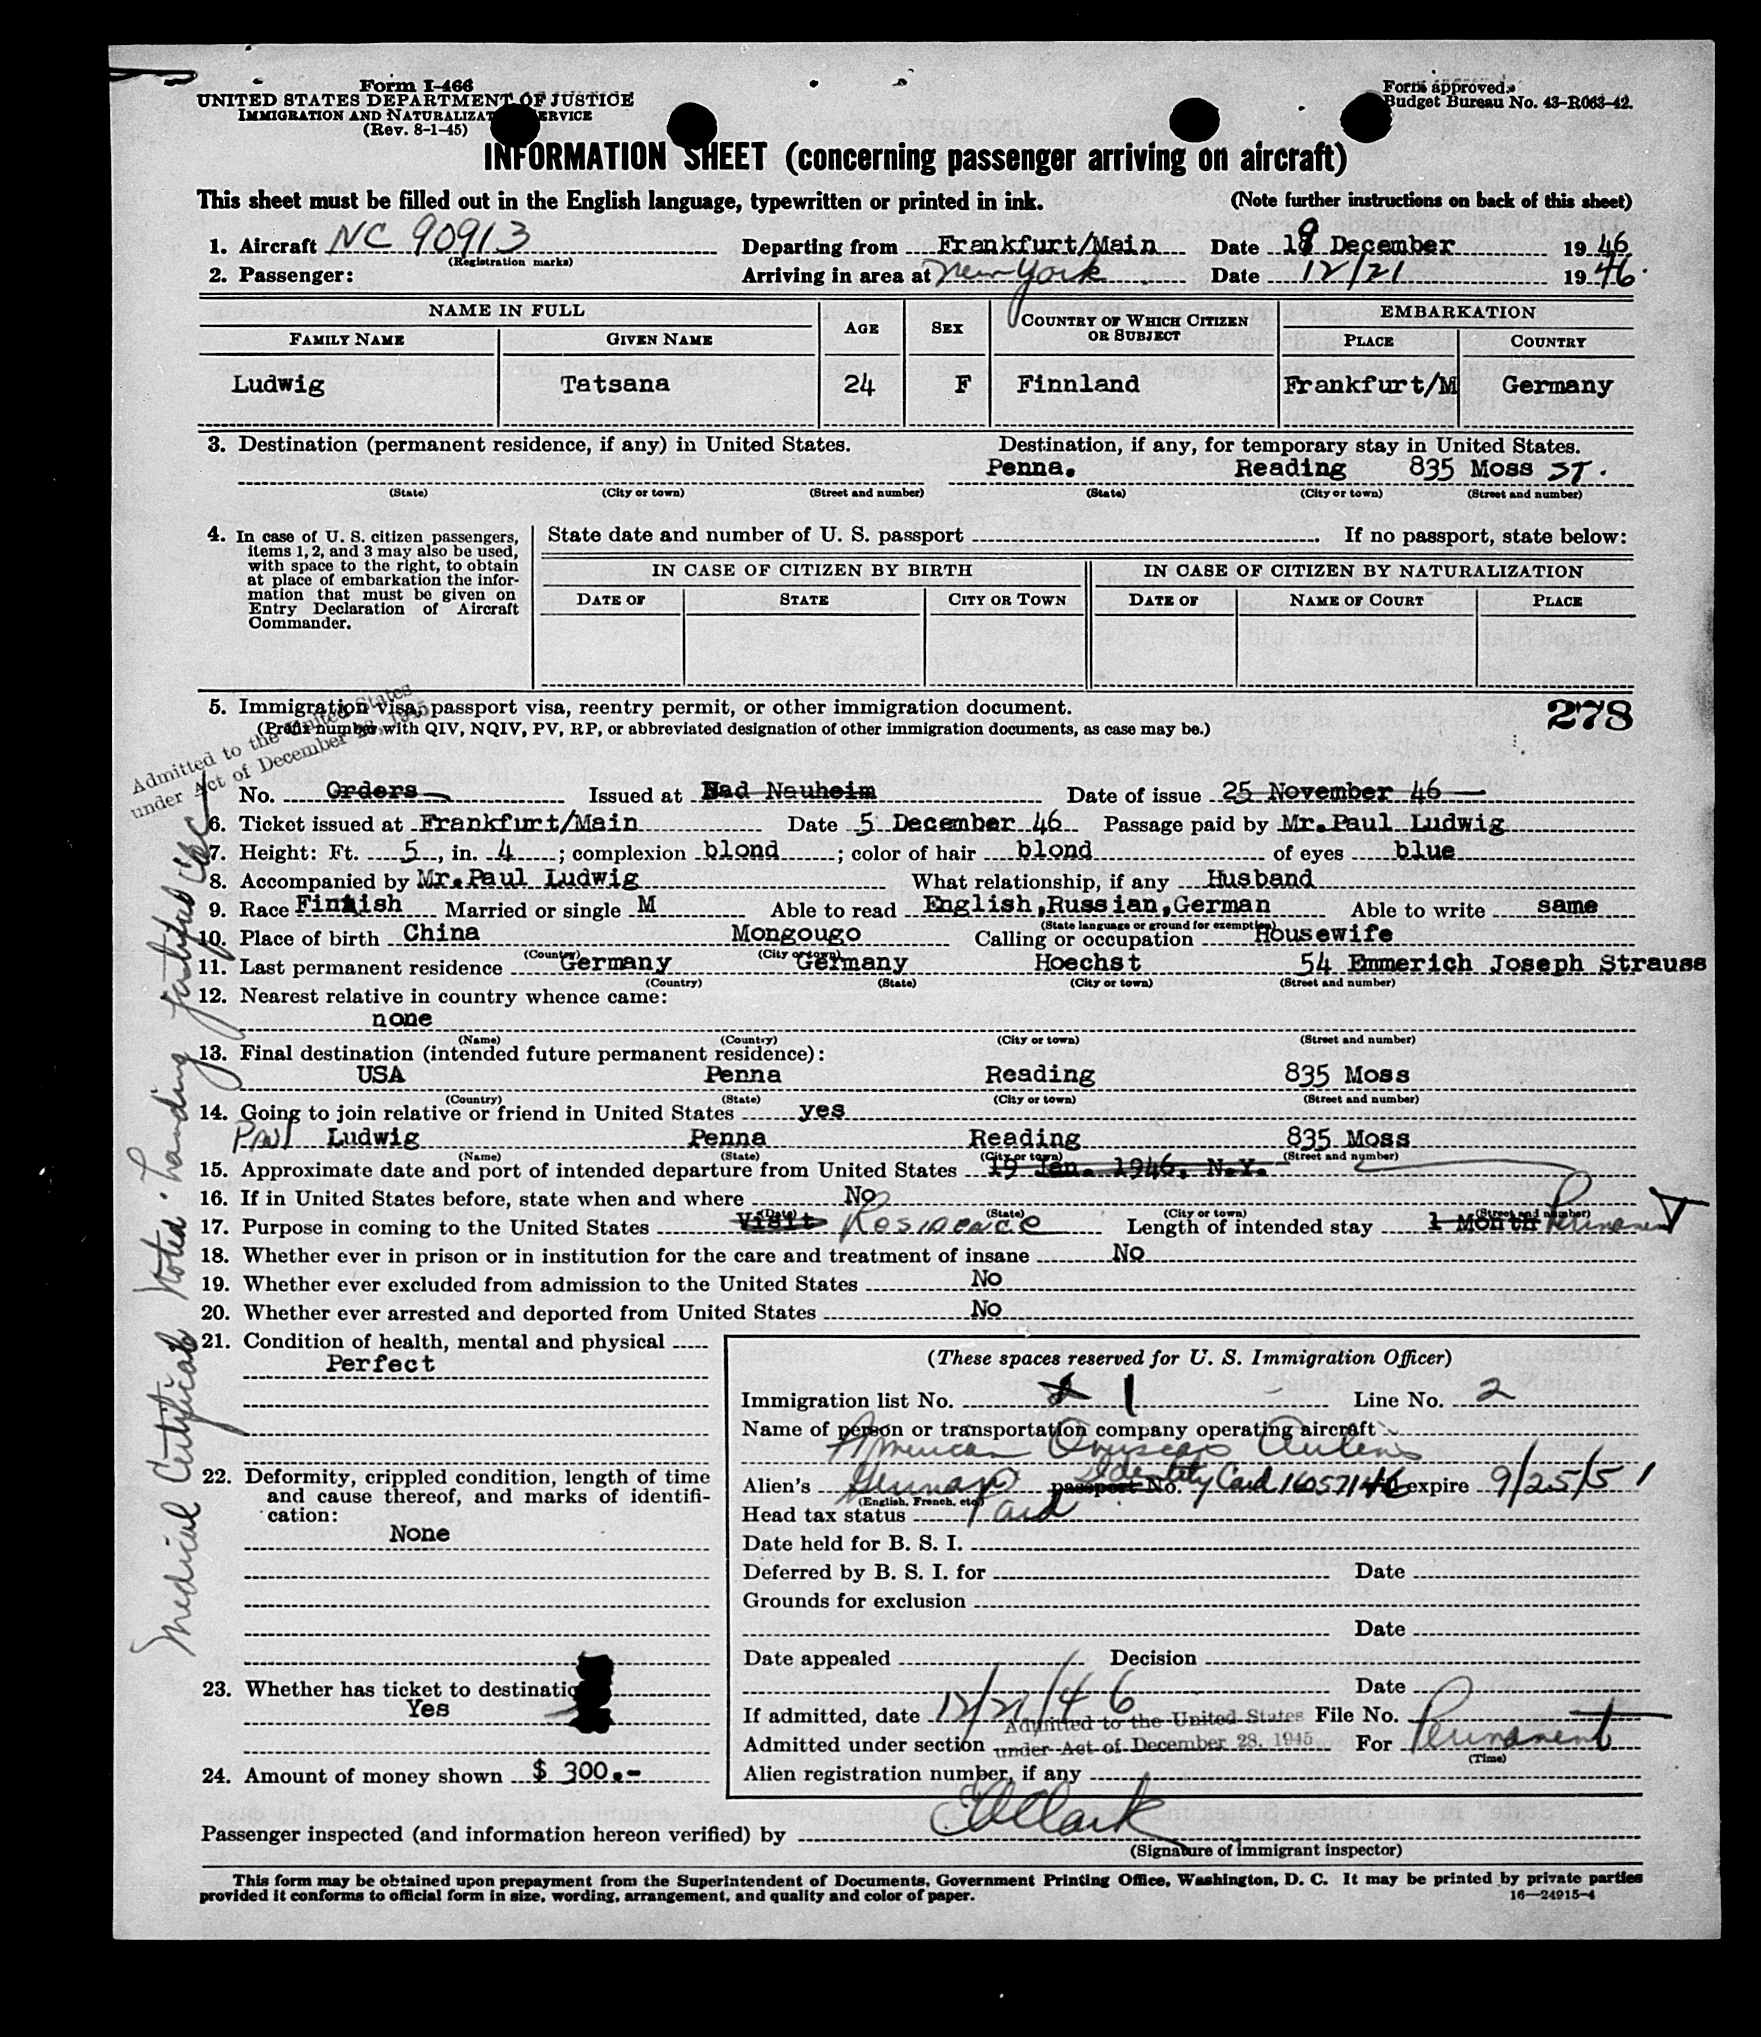 Form I-466
UNITED STATES DEPARTMENT OF JUSTICE
IMMIGRATION AND NATURALIZATION SERVICE
(Rev. 8-1-45)
Form approved.
Budget Bureau No. 43-R063-42.
INFORMATION SHEET (concerning passenger arriving on aircraft)
This sheet must be filled out in the English language, typewritten or printed in ink. (Note further instructions on back of this sheet)
1. Aircraft NC 90913 Departing from Frankfurt/Main Date 19 December 1946
(Registration marks)
2. Passenger: Arriving in area at New York Date 12/21 1946.
NAME IN FULL
FAMILY NAME GIVEN NAME AGE SEX COUNTRY OF WHICH CITIZEN OR SUBJECT EMBARKATION PLACE COUNTRY
Ludwig Tatsana 24 F Finnland Frankfurt/M Germany
3. Destination (permanent residence, if any) in United States. Destination, if any, for temporary stay in United States.
Penna. Reading 835 Moss ST.
(State) (City or town) (Street and number) (State) (City or town) (Street and number)
4. In case of U. S. citizen passengers,
items 1, 2, and 3 may also be used,
with space to the right, to obtain
at place of embarkation the infor-
mation that must be given on
Entry Declaration of Aircraft
Commander.
State date and number of U. S. passport If no passport, state below:
IN CASE OF CITIZEN BY BIRTH IN CASE OF CITIZEN BY NATURALIZATION
DATE OF STATE CITY OR TOWN DATE OF NAME OF COURT PLACE
5. Immigration visa, passport visa, reentry permit, or other immigration document. 278
(Prefix number with QIV, NQIV, PV, RP, or abbreviated designation of other immigration documents, as case may be.)
Admitted to the United States
under Act of December 28, 1945
No. Orders Issued at Bad Nauheim Date of issue 25 November 46
6. Ticket issued at Frankfurt/Main Date 5 December 46 Passage paid by Mr.Paul Ludwig
7. Height: Ft. 5, in. 4; complexion blond; color of hair blond of eyes blue
8. Accompanied by Mr.Paul Ludwig What relationship, if any Husband
9. Race Finnish Married or single M Able to read English,Russian,German Able to write same
(State language or ground for exemption)
10. Place of birth China Mongougo Calling or occupation Housewife
(Country) (City or town)
11. Last permanent residence Germany Germany Hoechst 54 Emmerich Joseph Strauss
(Country) (State) (City or town) (Street and number)
12. Nearest relative in country whence came:
none
(Name) (Country) (City or town) (Street and number)
13. Final destination (intended future permanent residence):
USA Penna Reading 835 Moss
(Country) (State) (City or town) (Street and number)
14. Going to join relative or friend in United States yes
Paul Ludwig Penna Reading 835 Moss
(Name) (State) (City or town) (Street and number)
15. Approximate date and port of intended departure from United States 19 Jan. 1946. N.Y.
16. If in United States before, state when and where No
(Date) (State) (City or town) (Street and number)
17. Purpose in coming to the United States Visit Residence Length of intended stay 1 Month Permanent
18. Whether ever in prison or in institution for the care and treatment of insane No
19. Whether ever excluded from admission to the United States No
20. Whether ever arrested and deported from United States No
21. Condition of health, mental and physical
Perfect
22. Deformity, crippled condition, length of time
and cause thereof, and marks of identifi-
cation:
None
23. Whether has ticket to destination
Yes
24. Amount of money shown $ 300.-
(These spaces reserved for U. S. Immigration Officer)
Immigration list No. 1 Line No. 2
Name of person or transportation company operating aircraft
American Overseas Airlines
Alien's German passport No. Identity Card 1605714 expire 9/25/51
(English, French, etc.)
Head tax status Paid
Date held for B. S. I.
Deferred by B. S. I. for Date
Grounds for exclusion
Date
Date appealed Decision
Date
If admitted, date 12/21/46 File No.
Admitted to the United States
Admitted under section under Act of December 28, 1945 For Permanent
(Time)
Alien registration number, if any
Passenger inspected (and information hereon verified) by Clark
(Signature of immigrant inspector)
This form may be obtained upon prepayment from the Superintendent of Documents, Government Printing Office, Washington, D. C. It may be printed by private parties
provided it conforms to official form in size, wording, arrangement, and quality and color of paper. 16—24915-4
Medical Certificate Noted. Landing